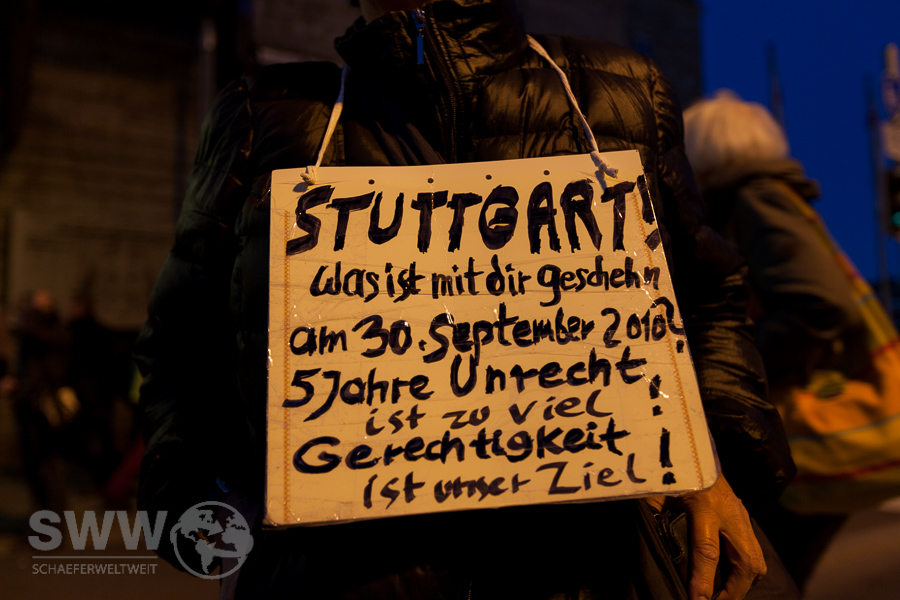 STUTTGART!
Was ist mit dir geschehn
am 30. September 2010?
5 Jahre Unrecht
ist zu viel !
Gerechtigkeit
ist unser Ziel !
SWW
SCHAEFERWELTWEIT